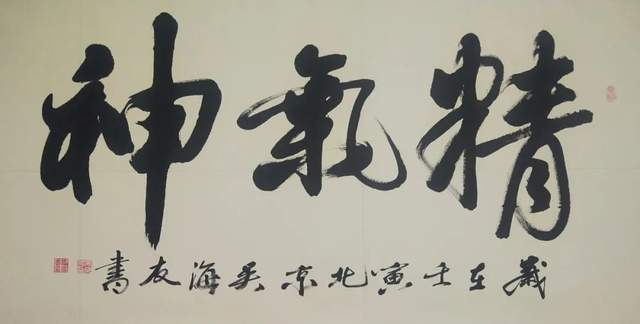 精氣神
歲在壬寅北京吴海友書